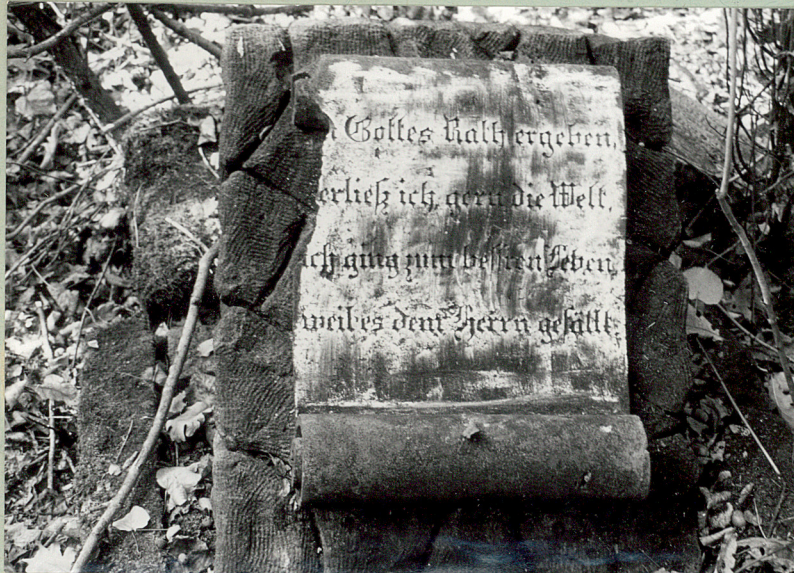 n Gottes Rath ergeben,
erließ ich gern die Welt,
ich ging zum bessren Leben,
weil es dem Herrn gefällt.